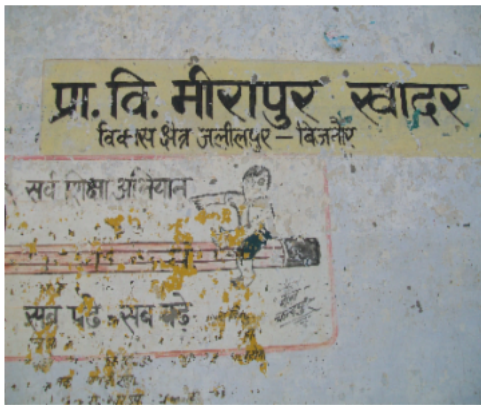 प्रा. वि. मीरापुर खादर
विकास क्षेत्र जलीलपुर – बिजनौर
सर्व शिक्षा अभियान
सब पढें सब बढें